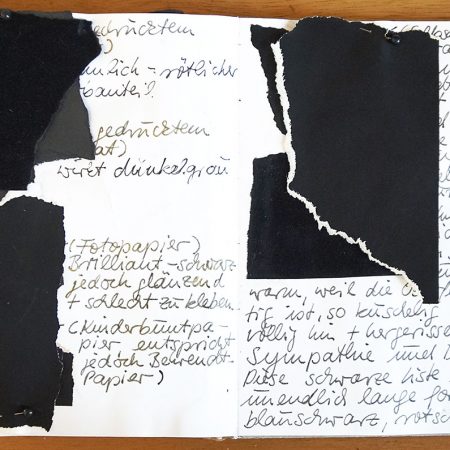 gedrücktem
)
unlich - rötlicher
banteil.
gedrücktem
at)
wirkt dunkelgrau
(Fotopapier)
Brilliant - schwarz
jedoch glänzend
+ schlecht zu kleben.
(Kinderbuntpa-
pier entspricht
jedoch Behrendt-
Papier)
warm, weil die
tig ist, so kuschelig
völlig hin + hergerisse
Sympathie und
Diese schwarze Liste
unendlich lange for
blauschwarz, rotsc